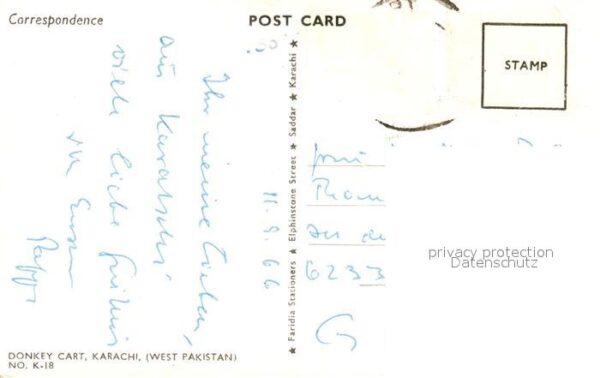 Correspondence
POST CARD
STAMP
11.9.66
Ihr meine Lieben,
aus Karatschi
viele liebe Grüße
★ Faridia Stationers ★ Elphinstone Street ★ Saddar ★ Karachi ★
6233
privacy protection
Datenschutz
DONKEY CART, KARACHI, (WEST PAKISTAN)
NO. K-18